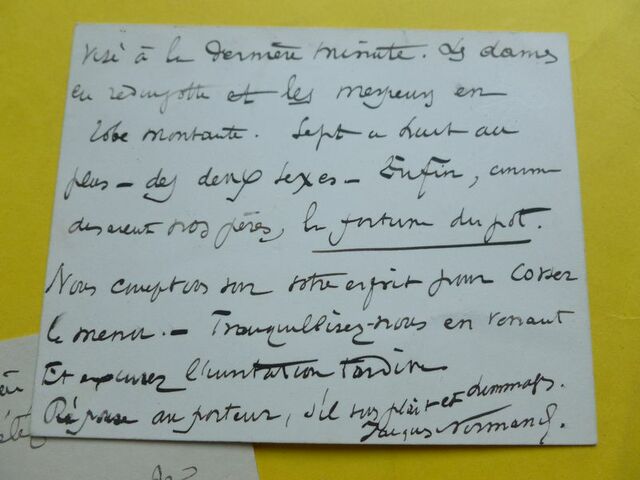 visé à la dernière minute. Les dames
en redingotte et les messieurs en
robe montante. Sept a huit au
plus – des deux sexes – Enfin, comme
disaient nos pères, la fortune du pot.
Nous comptons sur votre esprit pour corser
le menu. – Tranquillisez-nous en venant
Et excusez l'invitation tardive
Réponse au porteur, s'il vous plait et hommages.
Jacques Normand.